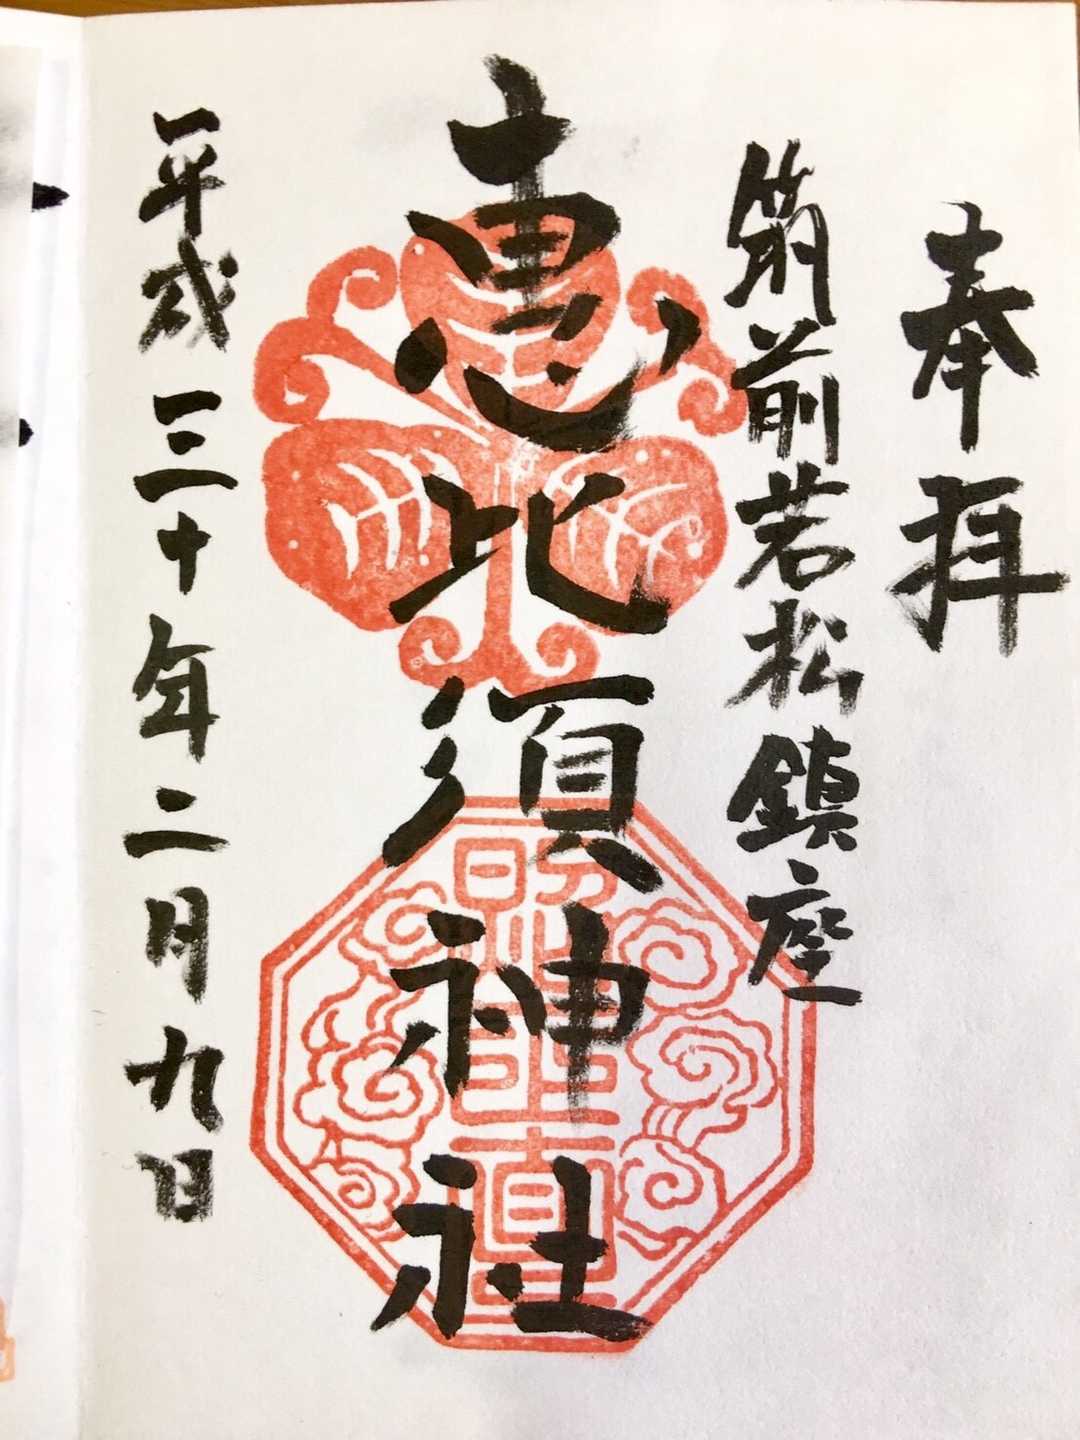 奉拝
筑前若松鎮座
恵比須神社
平成三十年二月九日